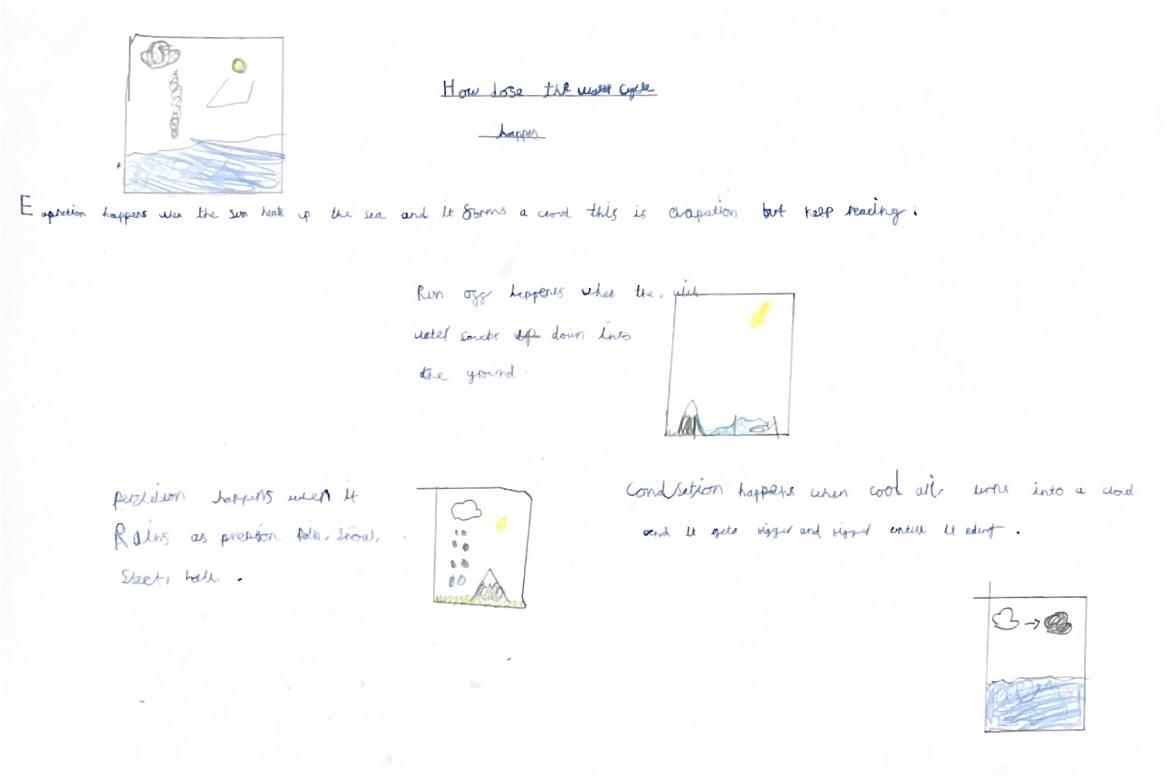 How dose the water cycle
happen
Eapration happens wen the sun heats up the sea and it forms a cloud this is evapation but keep reading.
Run off happens when the
water soucks down into
the ground
happens when it
Rains as Rain, Snow,
Sleet, hale.
Condsation happens when cool air turns into a cloud
and it gets bigger and bigger entill it